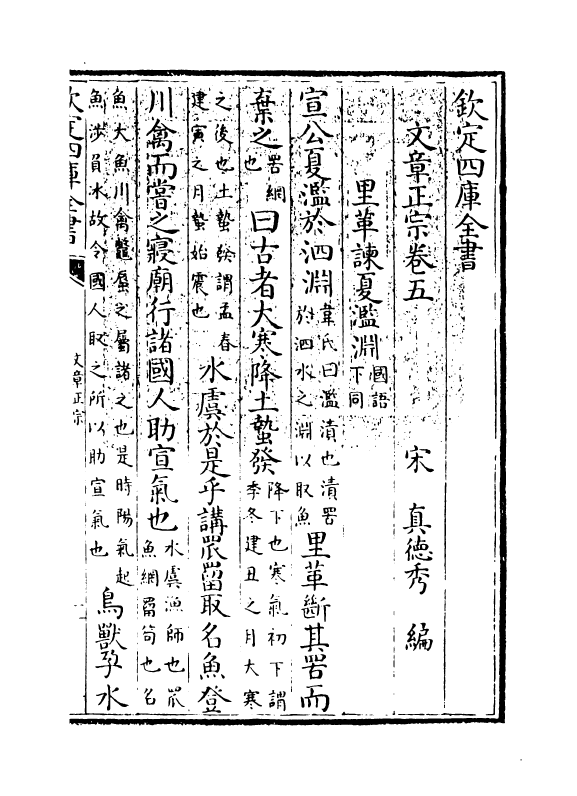 欽定四庫全書
文章正宗卷五
宋 真德秀 編
里革諫夏濫淵國語下同
宣公夏濫於泗淵韋氏曰濫漬也漬罟於泗水之淵以取魚里革斷其罟而
棄之罟網也曰古者大寒降土蟄發降下也寒氣初下謂季冬建丑之月大寒
之後也土蟄發謂孟春建寅之月蟄始震也水虞於是乎講罛罶取名魚登
川禽而嘗之寢廟行諸國人助宣氣也水虞漁師也罛魚網罶笱也名
魚大魚川禽鼈蜃之屬諸之也是時陽氣起魚涉負冰故令國人取之所以助宣氣也鳥獸孕水
欽定四庫全書
文章正宗